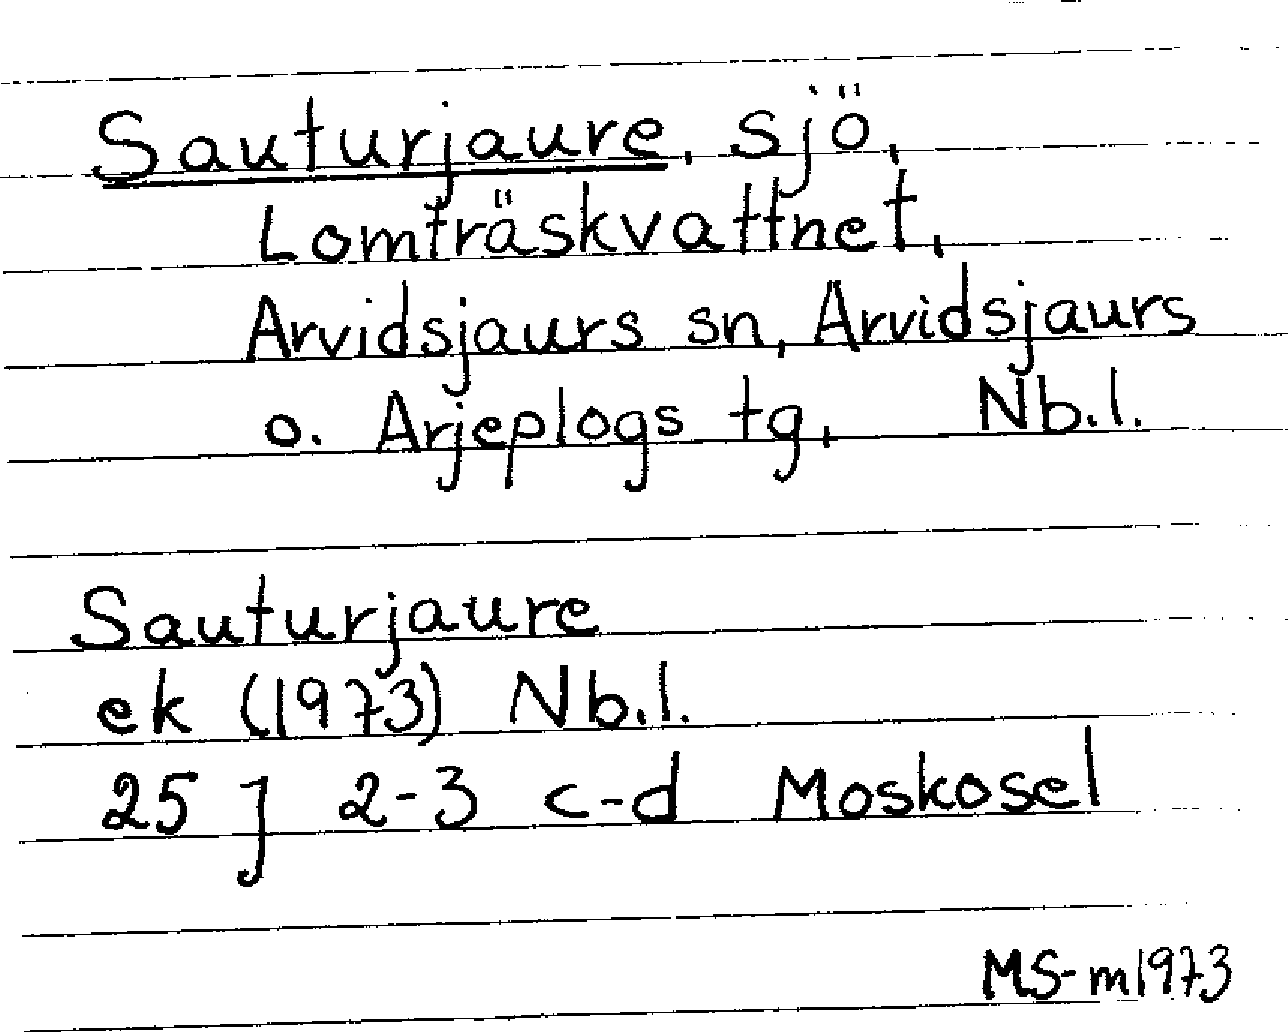 Sauturjaure, sjö,
Lomträskvattnet,
Arvidsjaurs sn, Arvidsjaurs
o. Arjeplogs tg, Nb.l.
Sauturjaure
ek (1973) Nb.l.
25 J 2-3 c-d Moskosel
MS-m1973